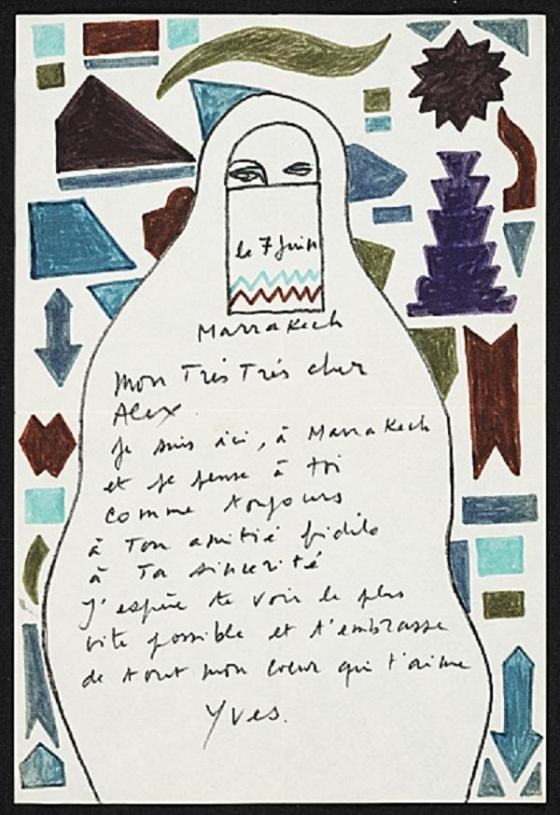 le 7 Juin
Marrakech
Mon Très Très cher
Alex.
Je suis ici, à Marrakech
et je pense à toi
comme toujours
à Ton amitié fidèle
à Ta sincerité
J'espère te voir le plus
vite possible et t'embrasse
de tout mon coeur qui t'aime
Yves.